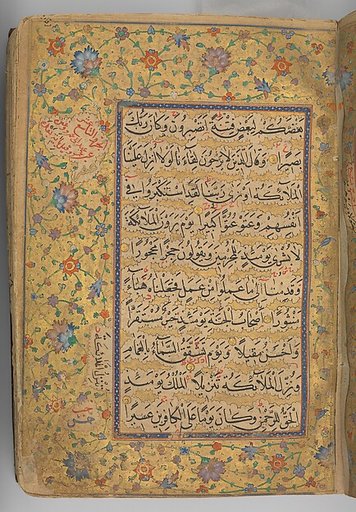 بعضكم لبعض فتنة اتصبرون وكان ربك
بصيرا وقال الذين لا يرجون لقاءنا لولا انزل علينا
الملائكة او نرى ربنا لقد استكبروا في
انفسهم وعتو عتوا كبيرا يوم يرون الملائكة
لا بشرى يومئذ للمجرمين ويقولون حجرا محجورا
وقدمنا الى ما عملوا من عمل فجعلناه هباء
منثورا اصحاب الجنة يومئذ خير مستقرا
واحسن مقيلا ويوم تشقق السماء بالغمام
ونزل الملائكة تنزيلا الملك يومئذ
الحق للرحمن وكان يوما على الكافرين عسيرا